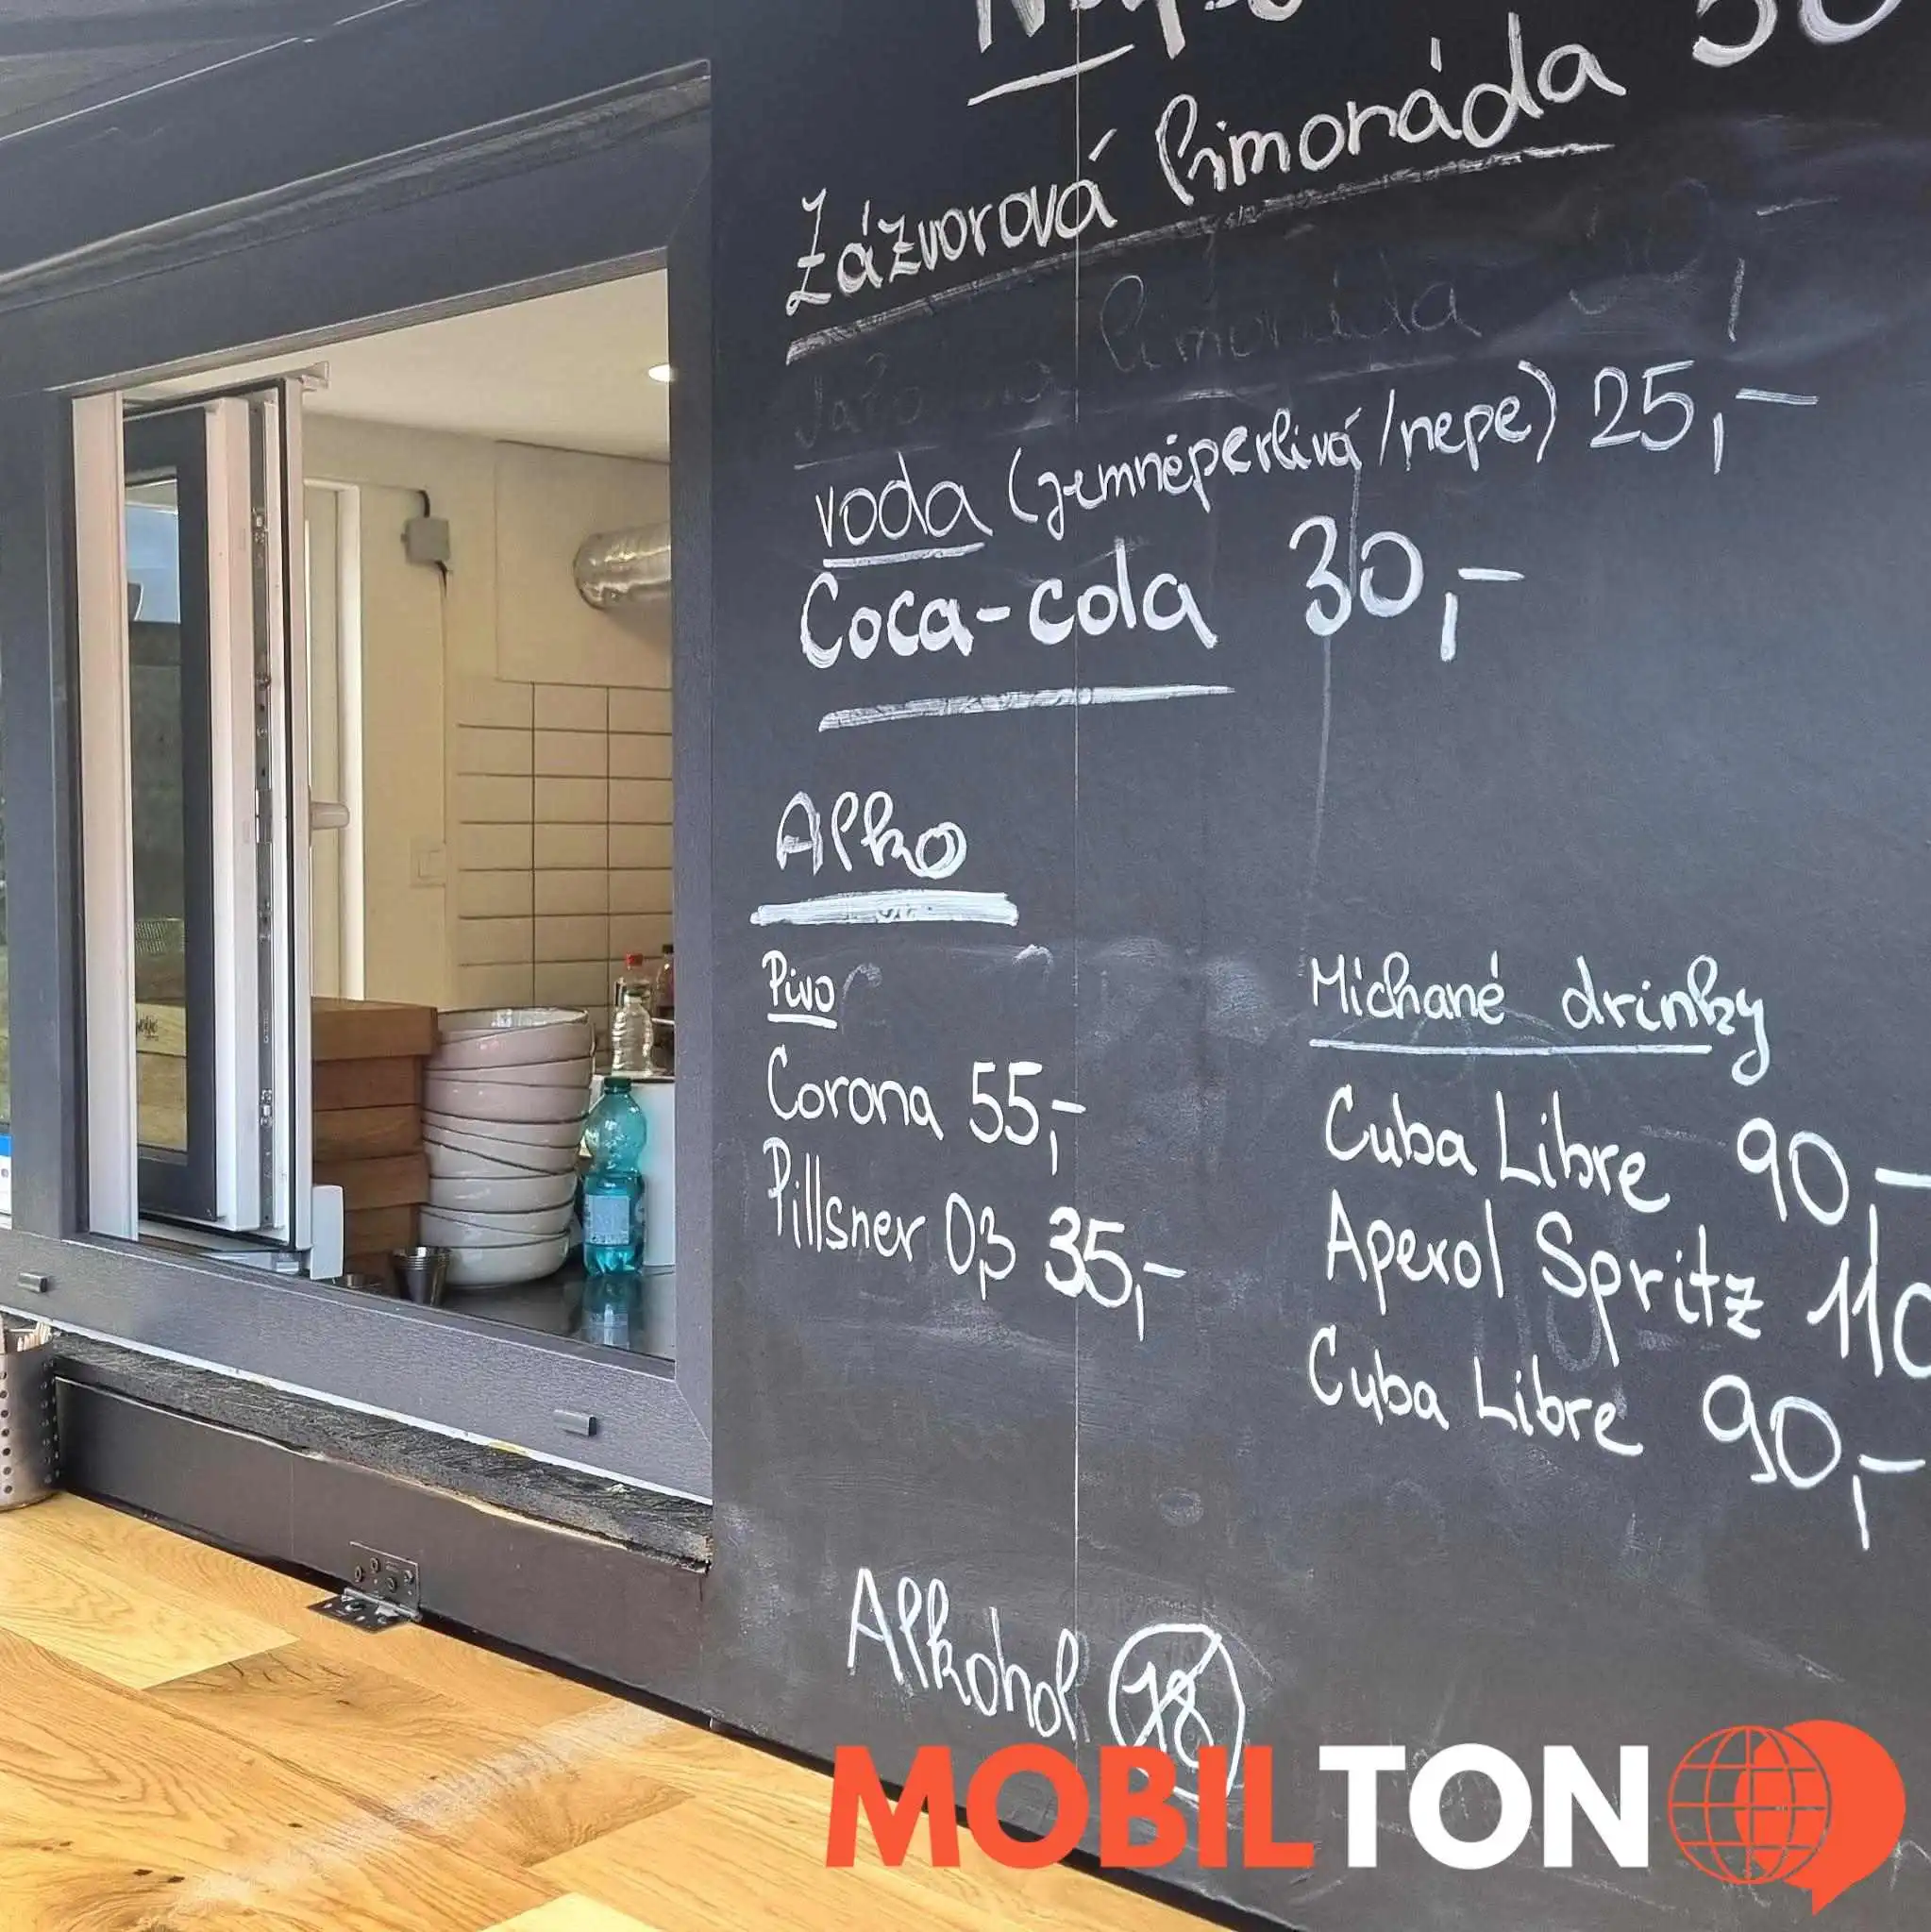 Zázvorová limonáda
limonáda
voda (jemněperlivá/nepe) 25,-
Coca-cola 30,-
Alko
Pivo
Corona 55,-
Pillsner 0,3 35,-
Míchané drinky
Cuba Libre 90,-
Aperol Spritz 110
Cuba Libre 90,-
Alkohol 18
MOBILTON